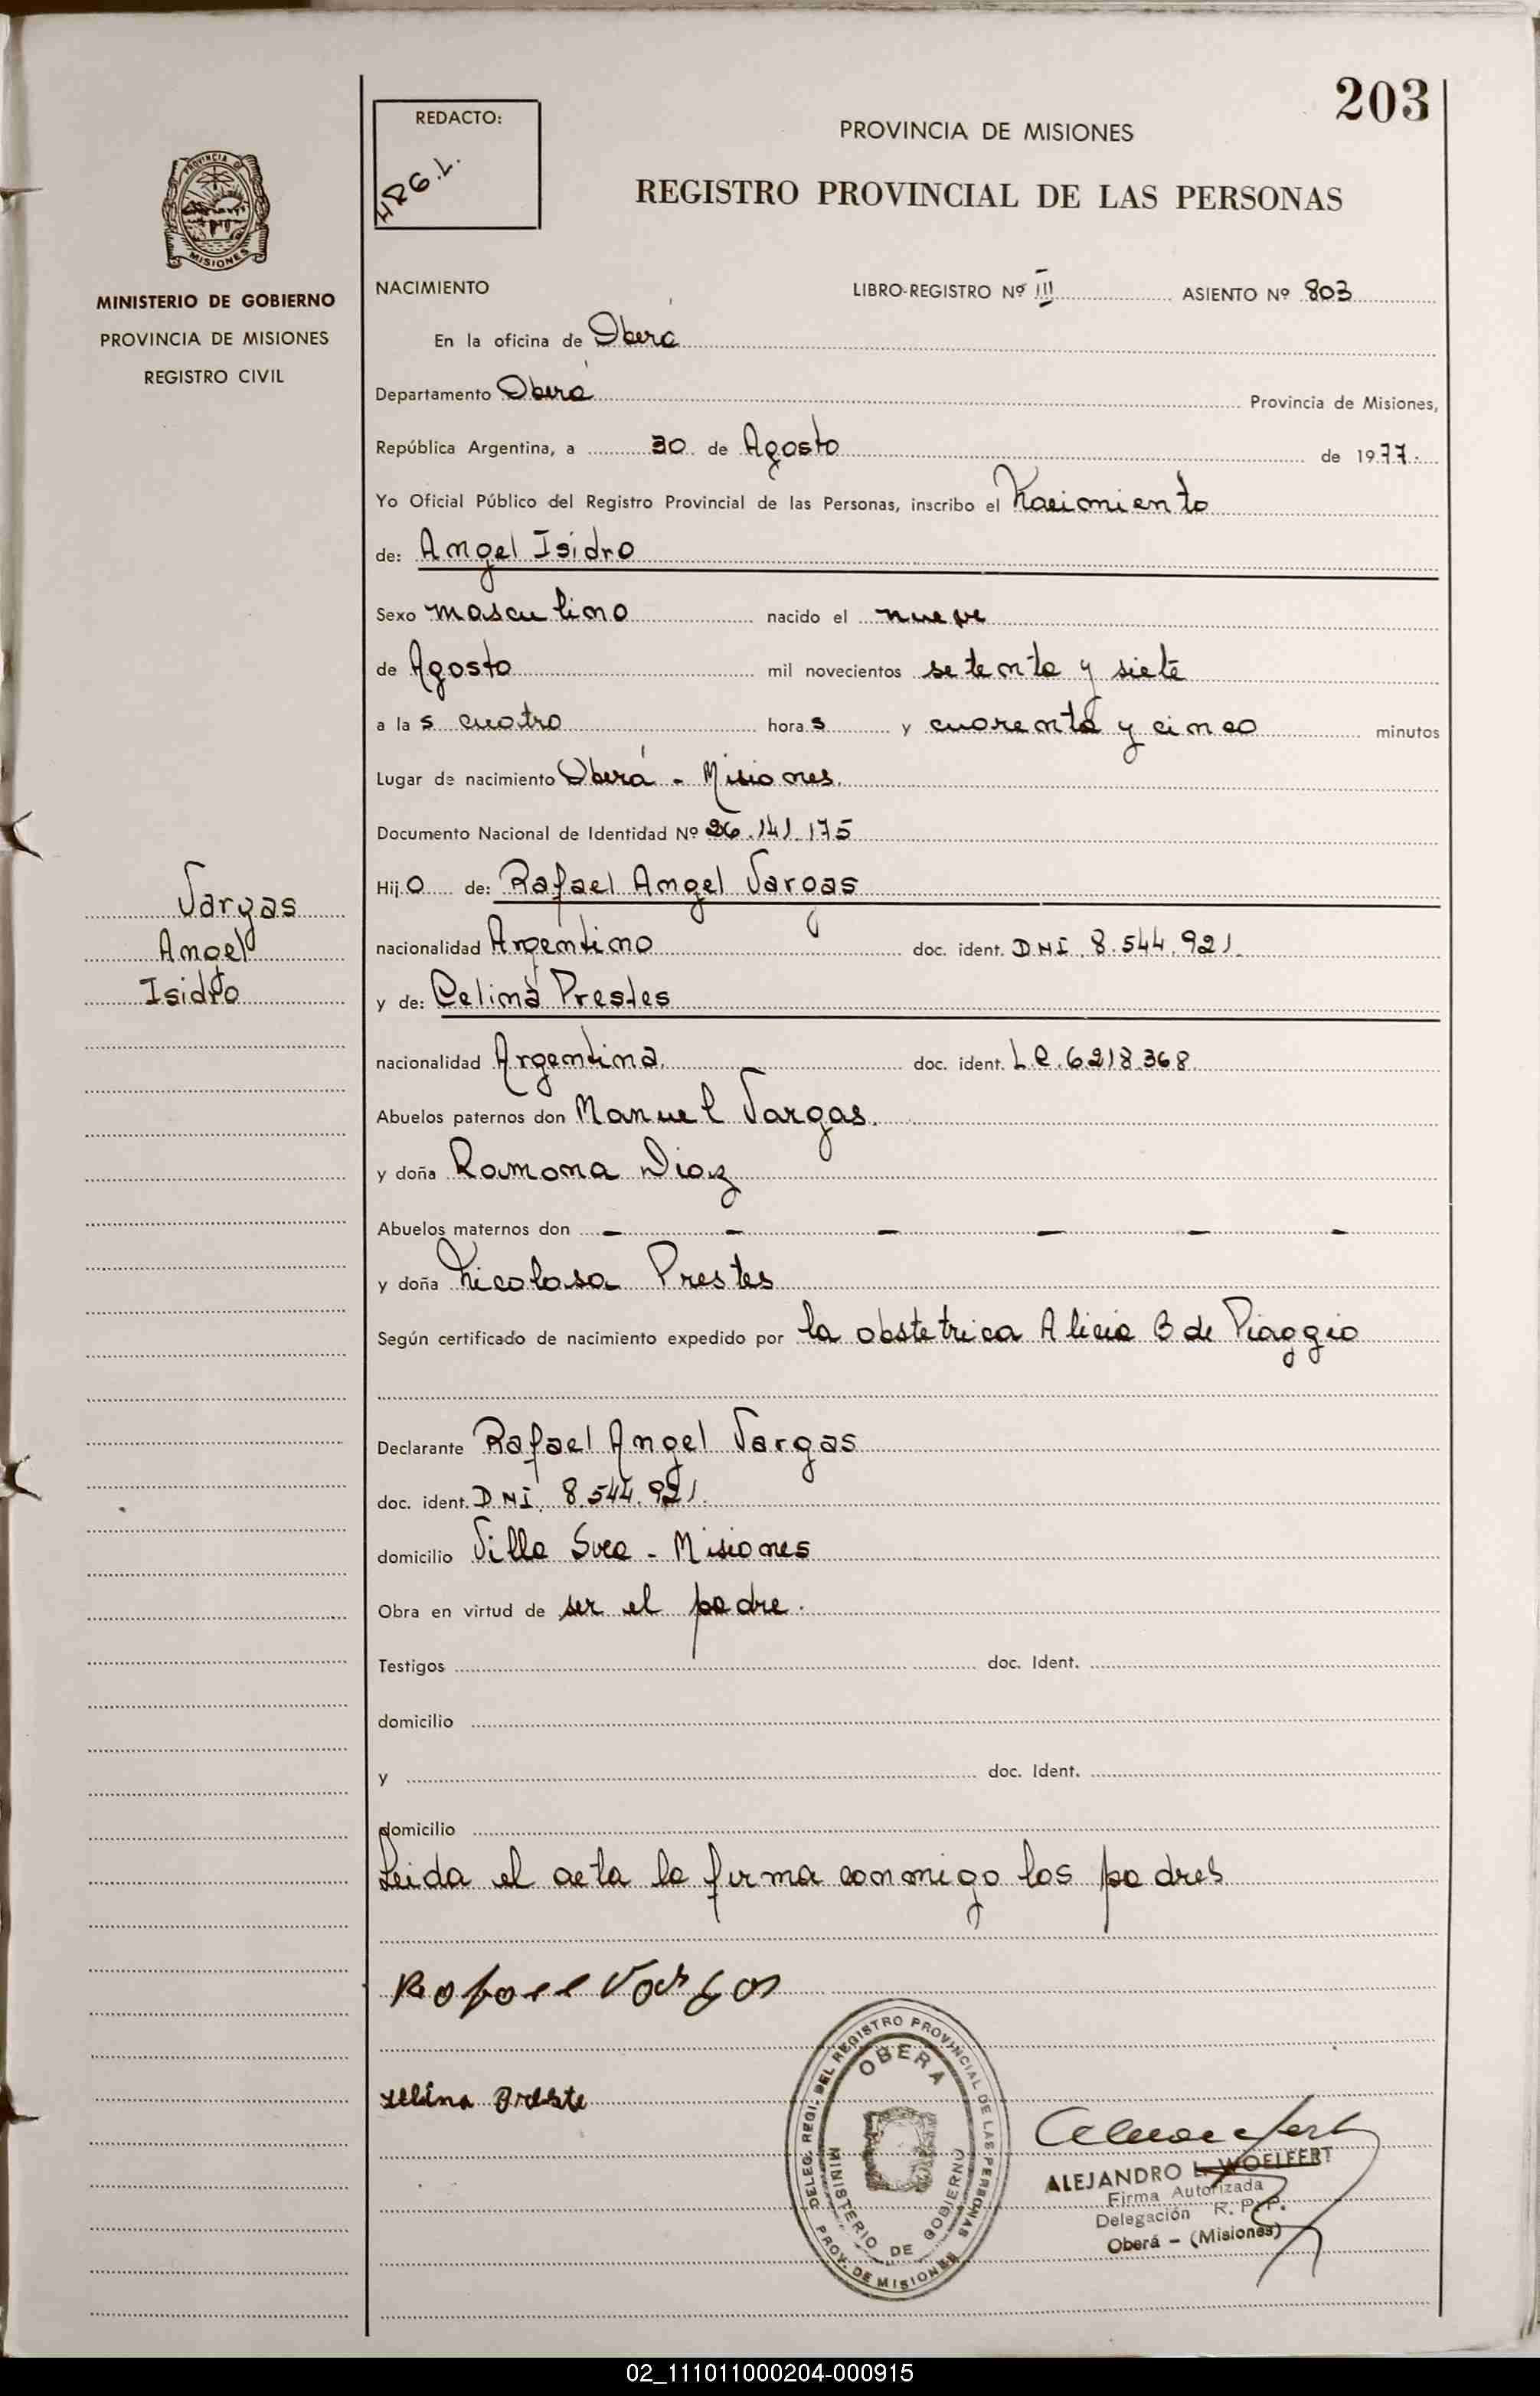 203
REDACTO:
PROVINCIA DE MISIONES
REGISTRO PROVINCIAL DE LAS PERSONAS
PROVINCIA DE
MISIONES
MINISTERIO DE GOBIERNO
PROVINCIA DE MISIONES
REGISTRO CIVIL
NACIMIENTO LIBRO-REGISTRO Nº III ASIENTO Nº 803
En la oficina de Oberá
Departamento Oberá Provincia de Misiones,
República Argentina, a 30 de Agosto de 1977.
Yo Oficial Público del Registro Provincial de las Personas, inscribo el Nacimiento
de: Angel Isidro
Sexo masculino nacido el nueve
de Agosto mil novecientos setenta y siete
a las cuatro horas y cuarenta y cinco minutos
Lugar de nacimiento Oberá - Misiones.
Documento Nacional de Identidad Nº 26.141.175
Vargas
Angel
Isidro
Hijo de: Rafael Angel Vargas
nacionalidad Argentino doc. ident. DNI. 8.544.921.
y de: Celina Prestes
nacionalidad Argentina. doc. ident. L.C. 6218.368.
Abuelos paternos don Manuel Vargas.
y doña Ramona Diaz
Abuelos maternos don - - - - - -
y doña Nicolasa Prestes
Según certificado de nacimiento expedido por la obstetrica Alicia B de Piaggio
Declarante Rafael Angel Vargas
doc. ident. DNI. 8.544.921.
domicilio Villa Svea - Misiones
Obra en virtud de ser el padre.
Testigos doc. Ident.
domicilio
y doc. Ident.
domicilio
Leida el acta la firma conmigo los padres
Rafael Vargas
DELEG. REGI. DEL REGISTRO PROVINCIAL DE LAS PERSONAS
OBERA
MINISTERIO DE GOBIERNO
PROV. DE MISIONES
ALEJANDRO L. WOELFERT
Firma Autorizada
Delegación R. P. P.
Oberá - (Misiones)
02_111011000204-000915